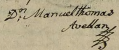 Dn. Manuel Thomas
Avellan